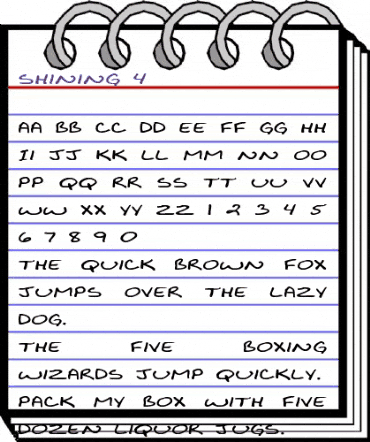 SHINING 4
AA BB CC DD EE FF GG HH
II JJ KK LL MM NN OO
PP QQ RR SS TT UU VV
WW XX YY ZZ 1 2 3 4 5
6 7 8 9 0
THE QUICK BROWN FOX
JUMPS OVER THE LAZY
DOG.
THE FIVE BOXING
WIZARDS JUMP QUICKLY.
PACK MY BOX WITH FIVE
DOZEN LIQUOR JUGS.